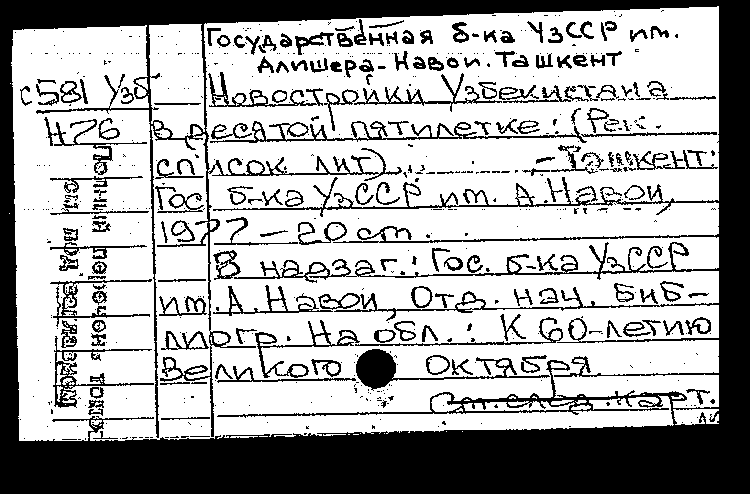 Государственная б-ка УзССР им.
Алишера-Навои. Ташкент
с581 Узб Новостройки Узбекистана
Н76 в десятой пятилетке: (Рек.
список лит) - Ташкент:
Гос. б-ка УзССР им. А. Навои,
1977 - 20 ст.
В надзаг.: Гос. б-ка УзССР
им. А. Навои, Отд. нач. биб-
лиогр. На обл.: К 60-летию
Великого Октября
См. след. карт.